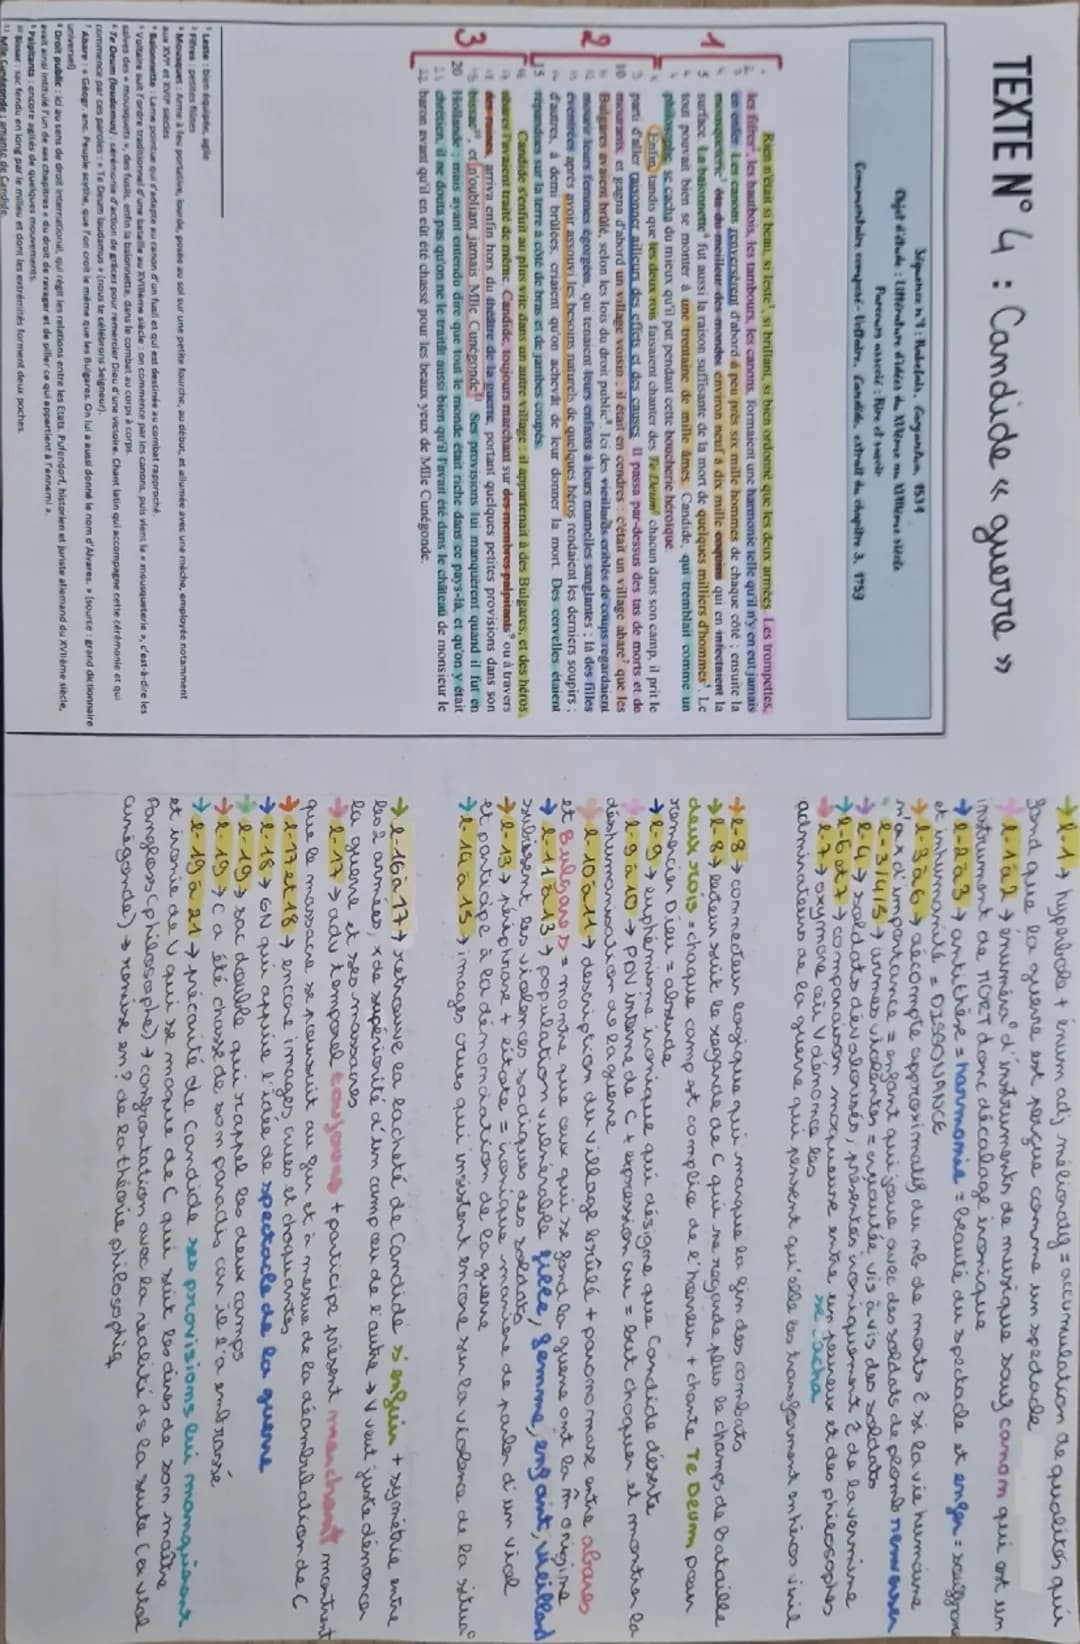 TEXTE N° 4 : Candide « guerre »
Séquence n°1 : Rabelais, Gargantua, 1534
Objet d'étude : Littérature d'idées du XVIème au XVIIIème siècle
Parcours associé : Rire et savoir
Commentaire composé. Voltaire, Candide, extrait du chapitre 3, 1759
1
Rien n'était si beau, si leste¹, si brillant, si bien ordonné que les deux armées. Les trompettes,
les fifres², les hautbois, les tambours, les canons, formaient une harmonie telle qu'il n'y en eut jamais
en enfer. Les canons renversèrent d'abord à peu près six mille hommes de chaque côté ; ensuite la
mousqueterie³ ôta du meilleur des mondes environ neuf à dix mille coquins qui en infectaient la
5 surface. La baïonnette⁴ fut aussi la raison suffisante de la mort de quelques milliers d'hommes⁵. Le
tout pouvait bien se monter à une trentaine de mille âmes. Candide, qui tremblait comme un
philosophe, se cacha du mieux qu'il put pendant cette boucherie héroïque.
2
Enfin, tandis que les deux rois faisaient chanter des Te Deum⁶ chacun dans son camp, il prit le
parti d'aller raisonner ailleurs des effets et des causes. Il passa par-dessus des tas de morts et de
10 mourants, et gagna d'abord un village voisin ; il était en cendres : c'était un village abare⁷ que les
Bulgares avaient brûlé, selon les lois du droit public⁸. Ici des vieillards criblés de coups regardaient
mourir leurs femmes égorgées, qui tenaient leurs enfants à leurs mamelles sanglantes ; là des filles
éventrées après avoir assouvi les besoins naturels de quelques héros rendaient les derniers soupirs ;
d'autres, à demi brûlées, criaient qu'on achevât de leur donner la mort. Des cervelles étaient
15 répandues sur la terre à côté de bras et de jambes coupés.
3
Candide s'enfuit au plus vite dans un autre village : il appartenait à des Bulgares, et des héros
abares l'avaient traité de même. Candide, toujours marchant sur des membres palpitants⁹ ou à travers
des ruines, arriva enfin hors du théâtre de la guerre, portant quelques petites provisions dans son
bissac¹⁰, et n'oubliant jamais Mlle Cunégonde¹¹. Ses provisions lui manquèrent quand il fut en
20 Hollande ; mais ayant entendu dire que tout le monde était riche dans ce pays-là, et qu'on y était
chrétien, il ne douta pas qu'on ne le traitât aussi bien qu'il l'avait été dans le château de monsieur le
baron avant qu'il en eût été chassé pour les beaux yeux de Mlle Cunégonde.
¹ Leste : bien équipée, agile
² Fifres : petites flûtes
³ Mousquet : Arme à feu portative, lourde, posée au sol sur une petite fourche, au début, et allumée avec une mèche, employée notamment
aux XVIᵉ et XVIIᵉ siècles
⁴ Baïonnette : Lame pointue qui s'adapte au canon d'un fusil et qui est destinée au combat rapproché.
⁵ Voltaire suit l'ordre traditionnel d'une bataille au XVIIIème siècle : on commence par les canons, puis vient la « mousqueterie », c'est-à-dire les
salves des « mousquets », des fusils, enfin la baïonnette, dans le combat au corps à corps.
⁶ Te Deum (laudamus) : cérémonie d'action de grâces pour remercier Dieu d'une victoire. Chant latin qui accompagne cette cérémonie et qui
commence par ces paroles : « Te Deum laudamus » (nous te célébrons Seigneur).
⁷ Abare : « Géogr. anc. Peuple scythe, que l'on croit le même que les Bulgares. On lui a aussi donné le nom d'Alvares. » (source : grand dictionnaire
universel)
⁸ Droit public : ici au sens de droit international, qui régit les relations entre les Etats. Pufendorf, historien et juriste allemand du XVIIème siècle,
avait ainsi intitulé l'un de ses chapitres « du droit de ravager et de piller ce qui appartient à l'ennemi ».
⁹ Palpitants : encore agités de quelques mouvements.
¹⁰ Bissac : sac fendu en long par le milieu et dont les extrémités forment deux poches.
¹¹ Mlle Cunégonde : amante de Candide
→ l-1 → hyperbole + énum adj mélioratif = accumulation de qualités qui
font que la guerre est perçue comme un spectacle
→ l-1 à 2 → énumérа° d'instruments de musique sauf canon qui est un
instrument de MORT donc décalage ironique
→ l-2 à 3 → antithèse = harmonie = beauté du spectacle et enfer = souffrance
et inhumanité = DISSONANCE
→ l-3 à 6 → décompte approximatif du nb de morts si la vie humaine
n'a x d'importance = enfant qui joue avec des soldats de plomb renverser
→ l-3/4/5 → armes violentes = cruauté vis à vis des soldats
→ l-4 → soldats dévalorisés, présentés ironiquement de la vermine
→ l-6 et 7 → comparaison moqueuse entre un peureux et des philosophes
se cacha
→ l-7 → oxymore où V dénonce les
admirateurs de la guerre qui pensent qu'elle les transforment en héros
→ l-8 → connecteur logique qui marque la fin des combats
→ l-8 → lecteur suit le regard de C qui ne regarde plus le champs de bataille
deux rois = chaque camp est complice de l'horreur + chante Te Deum pour
remercier Dieu = absurde
→ l-9 → euphémisme ironique qui désigne que Candide déserte
→ l-9 à 10 → PDV interne de C + expression cru = but choquer et montrer la
déshumanisation de la guerre
→ l-10 à 11 → description du village brûlé + paronomase entre abares
et Bulgares = montre que ceux qui se font la guerre ont la m̂ origine
→ l-11 à 13 → population vulnérable fille, femme, enfant, vieillard
subissent les violences sadiques des soldats
→ l-13 → périphrase + litote = ironique manière de parler d'un viol
et participe à la dénonciation de la guerre
→ l-14 à 15 → images crues qui insistent encore sur la violence de la situa°
→ l-16 à 17 → retrouve la lâcheté de Candide s'enfuir + symétrie entre
les 2 armées, x de supériorité d'un camp ou de l'autre → V veut juste dénoncer
la guerre et ses massacres
→ l-17 → adv temporel toujours + participe présent marchant montrent
que le massacre se poursuit au fur et à mesure de la déambulation de C
→ l-17 et 18 → encore images crues et choquantes
→ l-18 → GN qui appuie l'idée de spectacle de la guerre
→ l-19 → sac double qui rappel les deux camps
→ l-19 → C a été chassé de son paradis car il l'a embrassé
→ l-19 à 21 → précarité de Candide ses provisions lui manquèrent
et ironie de V qui se moque de C qui suit les dires de son maître
Pangloss (philosophe) → confrontation avec la réalité ds la suite (
Cunégonde) → remise en ? de la théorie philosophiq